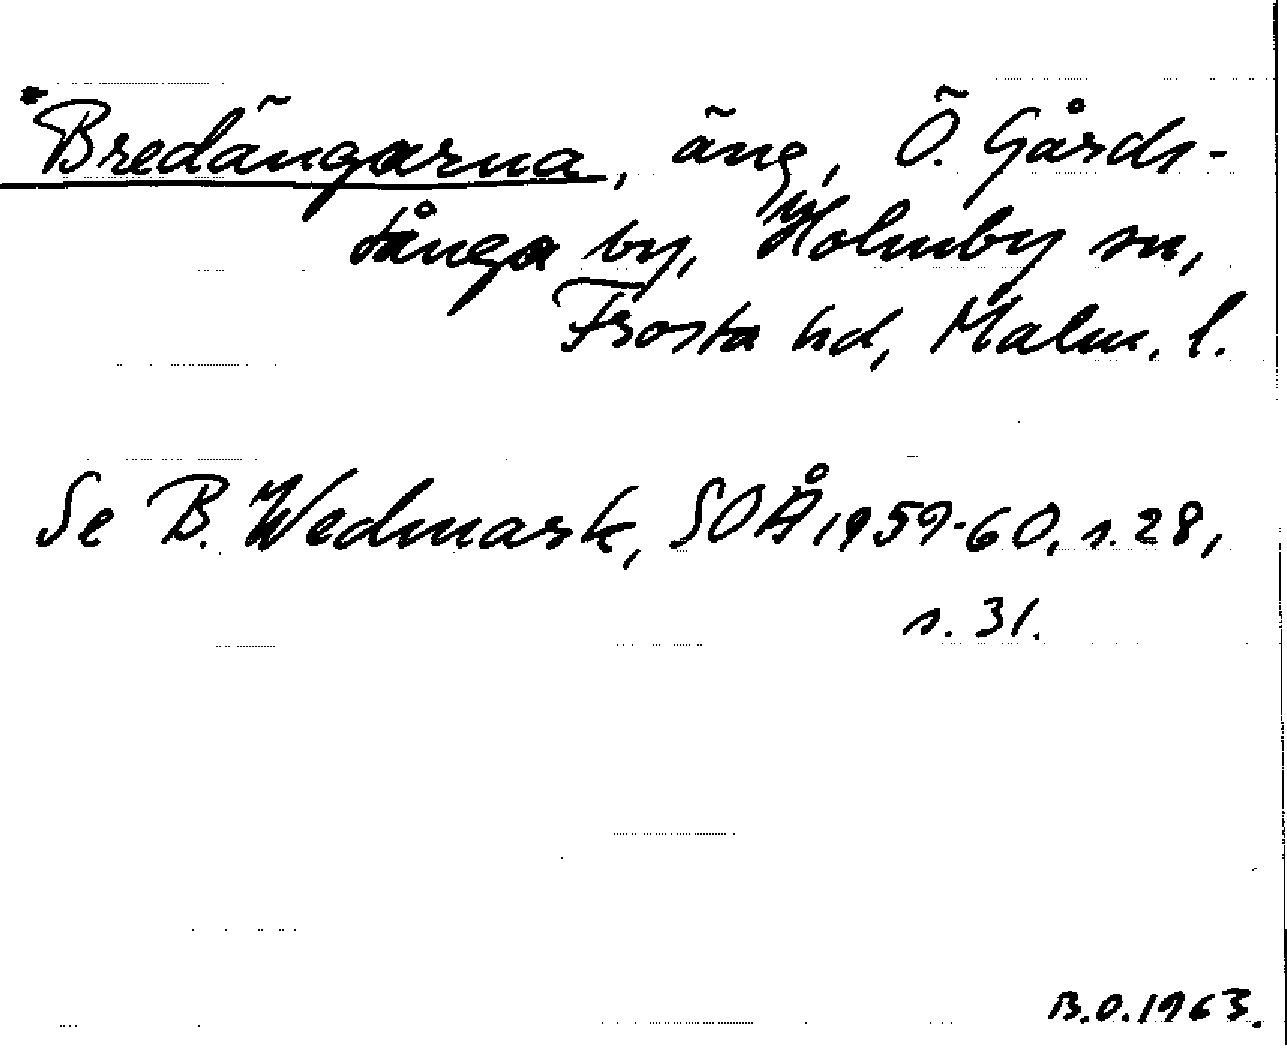 *Bredängarna, äng, Ö. Gårds-
tånga by, Holmby sn,
Frosta hd, Malm. l.
Se B. Wedmark, SOÅ 1959-60, s. 28,
s. 31.
B.O. 1963.